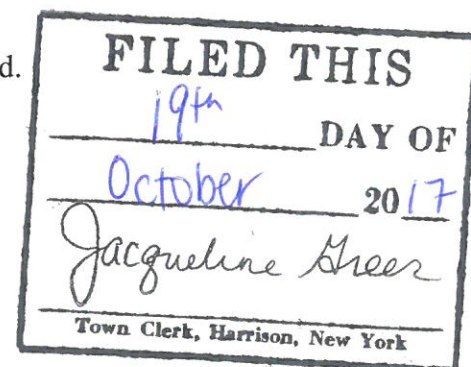 d.
FILED THIS
19th DAY OF
October 2017
Jacqueline Greer
Town Clerk, Harrison, New York